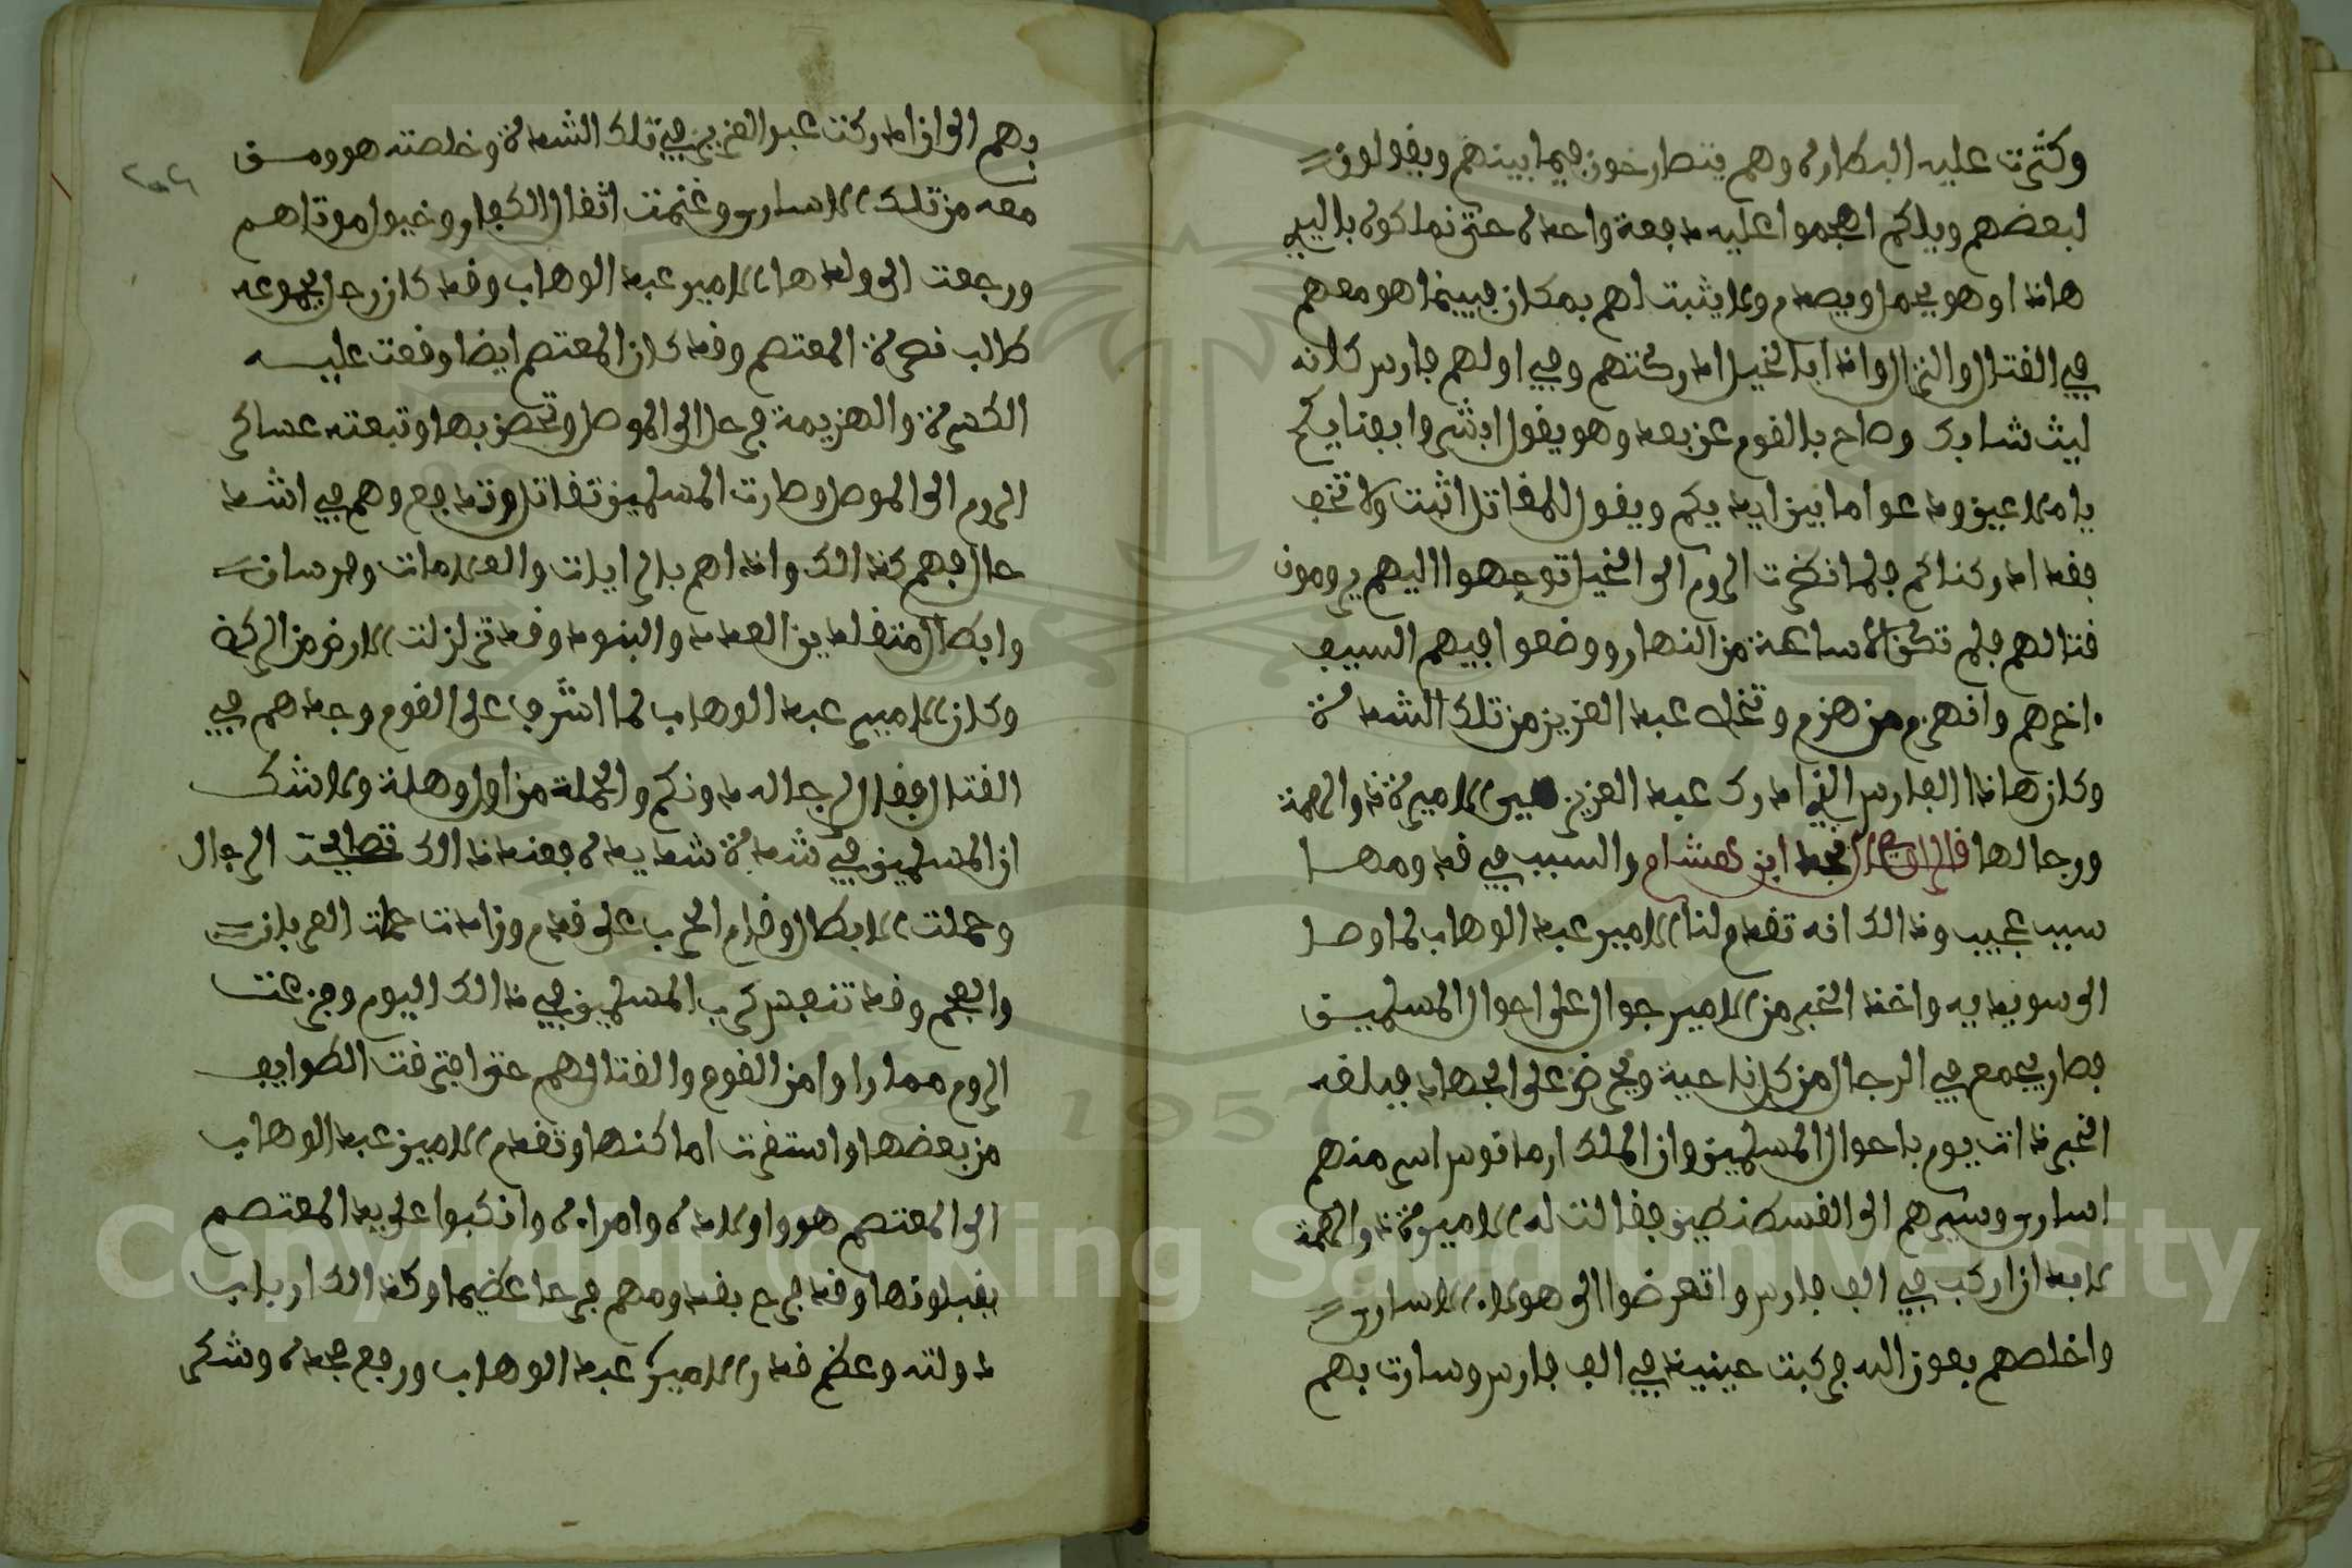 وكثرت عليه البطارة وهم يتطارخون فيما بينهم ويقولون
لبعضهم ويلكم اهجموا عليه دفعة واحدة حتى نملكوه باليد
هاذا وهو يحمل ويصدم ولا يثبت لهم بمكان فبينما هو معهم
في القتال والنزال واذا بالخيل ادركتهم وفي اولهم فارس كانه
ليث شابك وصاح بالقوم عن بعد وهو يقول ابشروا بفنايكم
يا ملاعين ودعوا ما بين ايديكم ويقول للمقاتل اثبت ولا تخف
فقد ادركناكم فلما نظرت الروم الى الخيل توجهوا اليهم يرومون
قتالهم فلم تكن الا ساعة من النهار ووضعوا فيهم السيف
اخرهم وانهزم من هزم وتخلص عبد العزيز من تلك الشدة
وكان هاذا الفارس الذي ادرك عبد العزيز هي الاميرة ذو الهمة
ورجالها قال الراوي نجد ابن هشام والسبب في قدومها
سبب عجيب وذالك انه تقدم لنا الامير عبد الوهاب لما وصل
الى سويديه واخذ الخبر من الامير جوال على احوال المسلمين
فصار يجمع في الرجال من كل ناحية ويحرض على الجهاد فبلغه
الخبر ذات يوم باحوال المسلمين وان الملك ارمانوس اسر منهم
اسارى وسيرهم الى القسطنطين فقالت له الاميرة ذو الهمة
لابد ان اركب في الف فارس واتعرضوا الى هولاء الاسارى
واخلصهم بعون الله فركبت حينيذ في الف فارس وسارت بهم
بهم الى ان ادركت عبد العزيز في تلك الشدة وخلصته هو ومن
معه من تلك الاسارى وغنمت اثقال الكفار وخيول موتاهم
ورجعت الى ولدها الامير عبد الوهاب وقد كان رحل بجموعه
طالب نصرة المعتصم وقد كان المعتصم ايضا وقعت عليه
الكسرة والهزيمة فرحل الى الموصل وتحصن بها وتبعته عساكر
الروم الى الموصل وصارت المسلمين تقاتل وتدافع وهم في اشد
حال فبهم كذالك واذا هم بالرايات والعلامات وفرسان
وابطال متقلدين العدد والبنود وقد تزلزلت الارض من الركض
وكان الامير عبد الوهاب لما اشرف على القوم وجدهم في
القتال فقال الرجاله دونكم والحملة من اول وهلة ولا شك
ان المسلمين في شدة شديدة فعند ذالك تصايحت الرجال
وحملت الابطال وقام الحرب على قدم ونادت حماة العربان
والعجم وقد تنفس كرب المسلمين في ذالك اليوم وجزعت
الروم مما راوا من القوم والقتال لهم حتى افترقت الطوايف
من بعضها واستقرت اماكنها وتقدم الامير عبد الوهاب
الى المعتصم هو واولاده وامراءه وانكبوا على يد المعتصم
يقبلونها وقد فرح بقدومهم فرحا عظيما وكذالك ارباب
دولته وعظم قدر الامير عبد الوهاب ورفع مجده وشكر